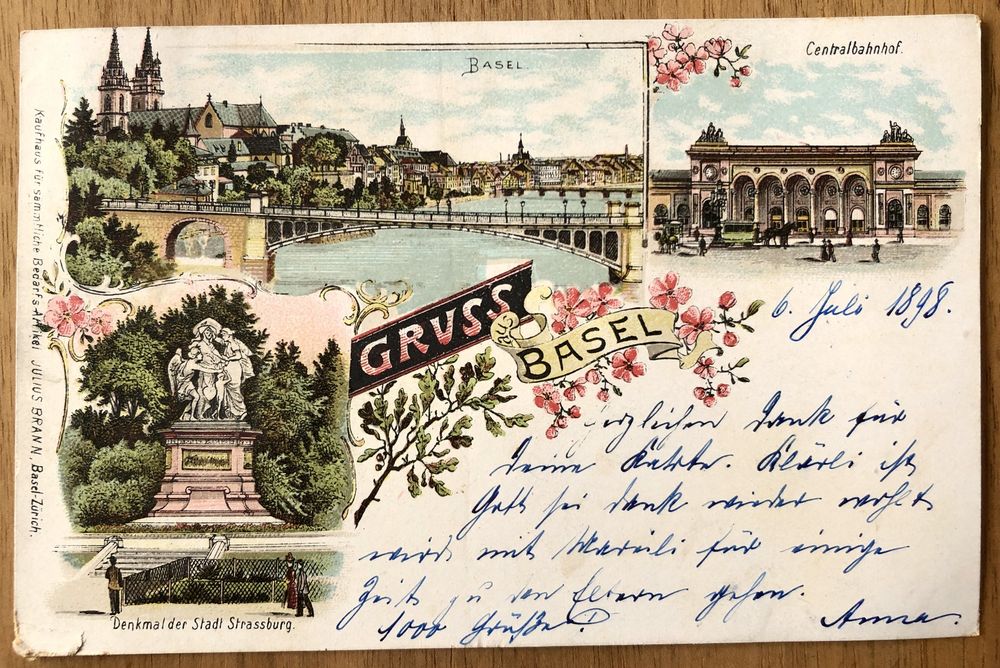 BASEL
Centralbahnhof.
GRUSS
AUS
BASEL
6. Juli 1898.
Herzlichen Dank für
Deine Karte. Klärli ist
Gott sei dank wieder wohl &
wird mit Mareili für einige
Zeit zu den Eltern gehen.
1000 Grüße!
Anna.
Denkmal der Stadt Strassburg.
Kaufhaus für sämmtliche Bedarfs-Artikel JULIUS BRANN, Basel-Zürich.